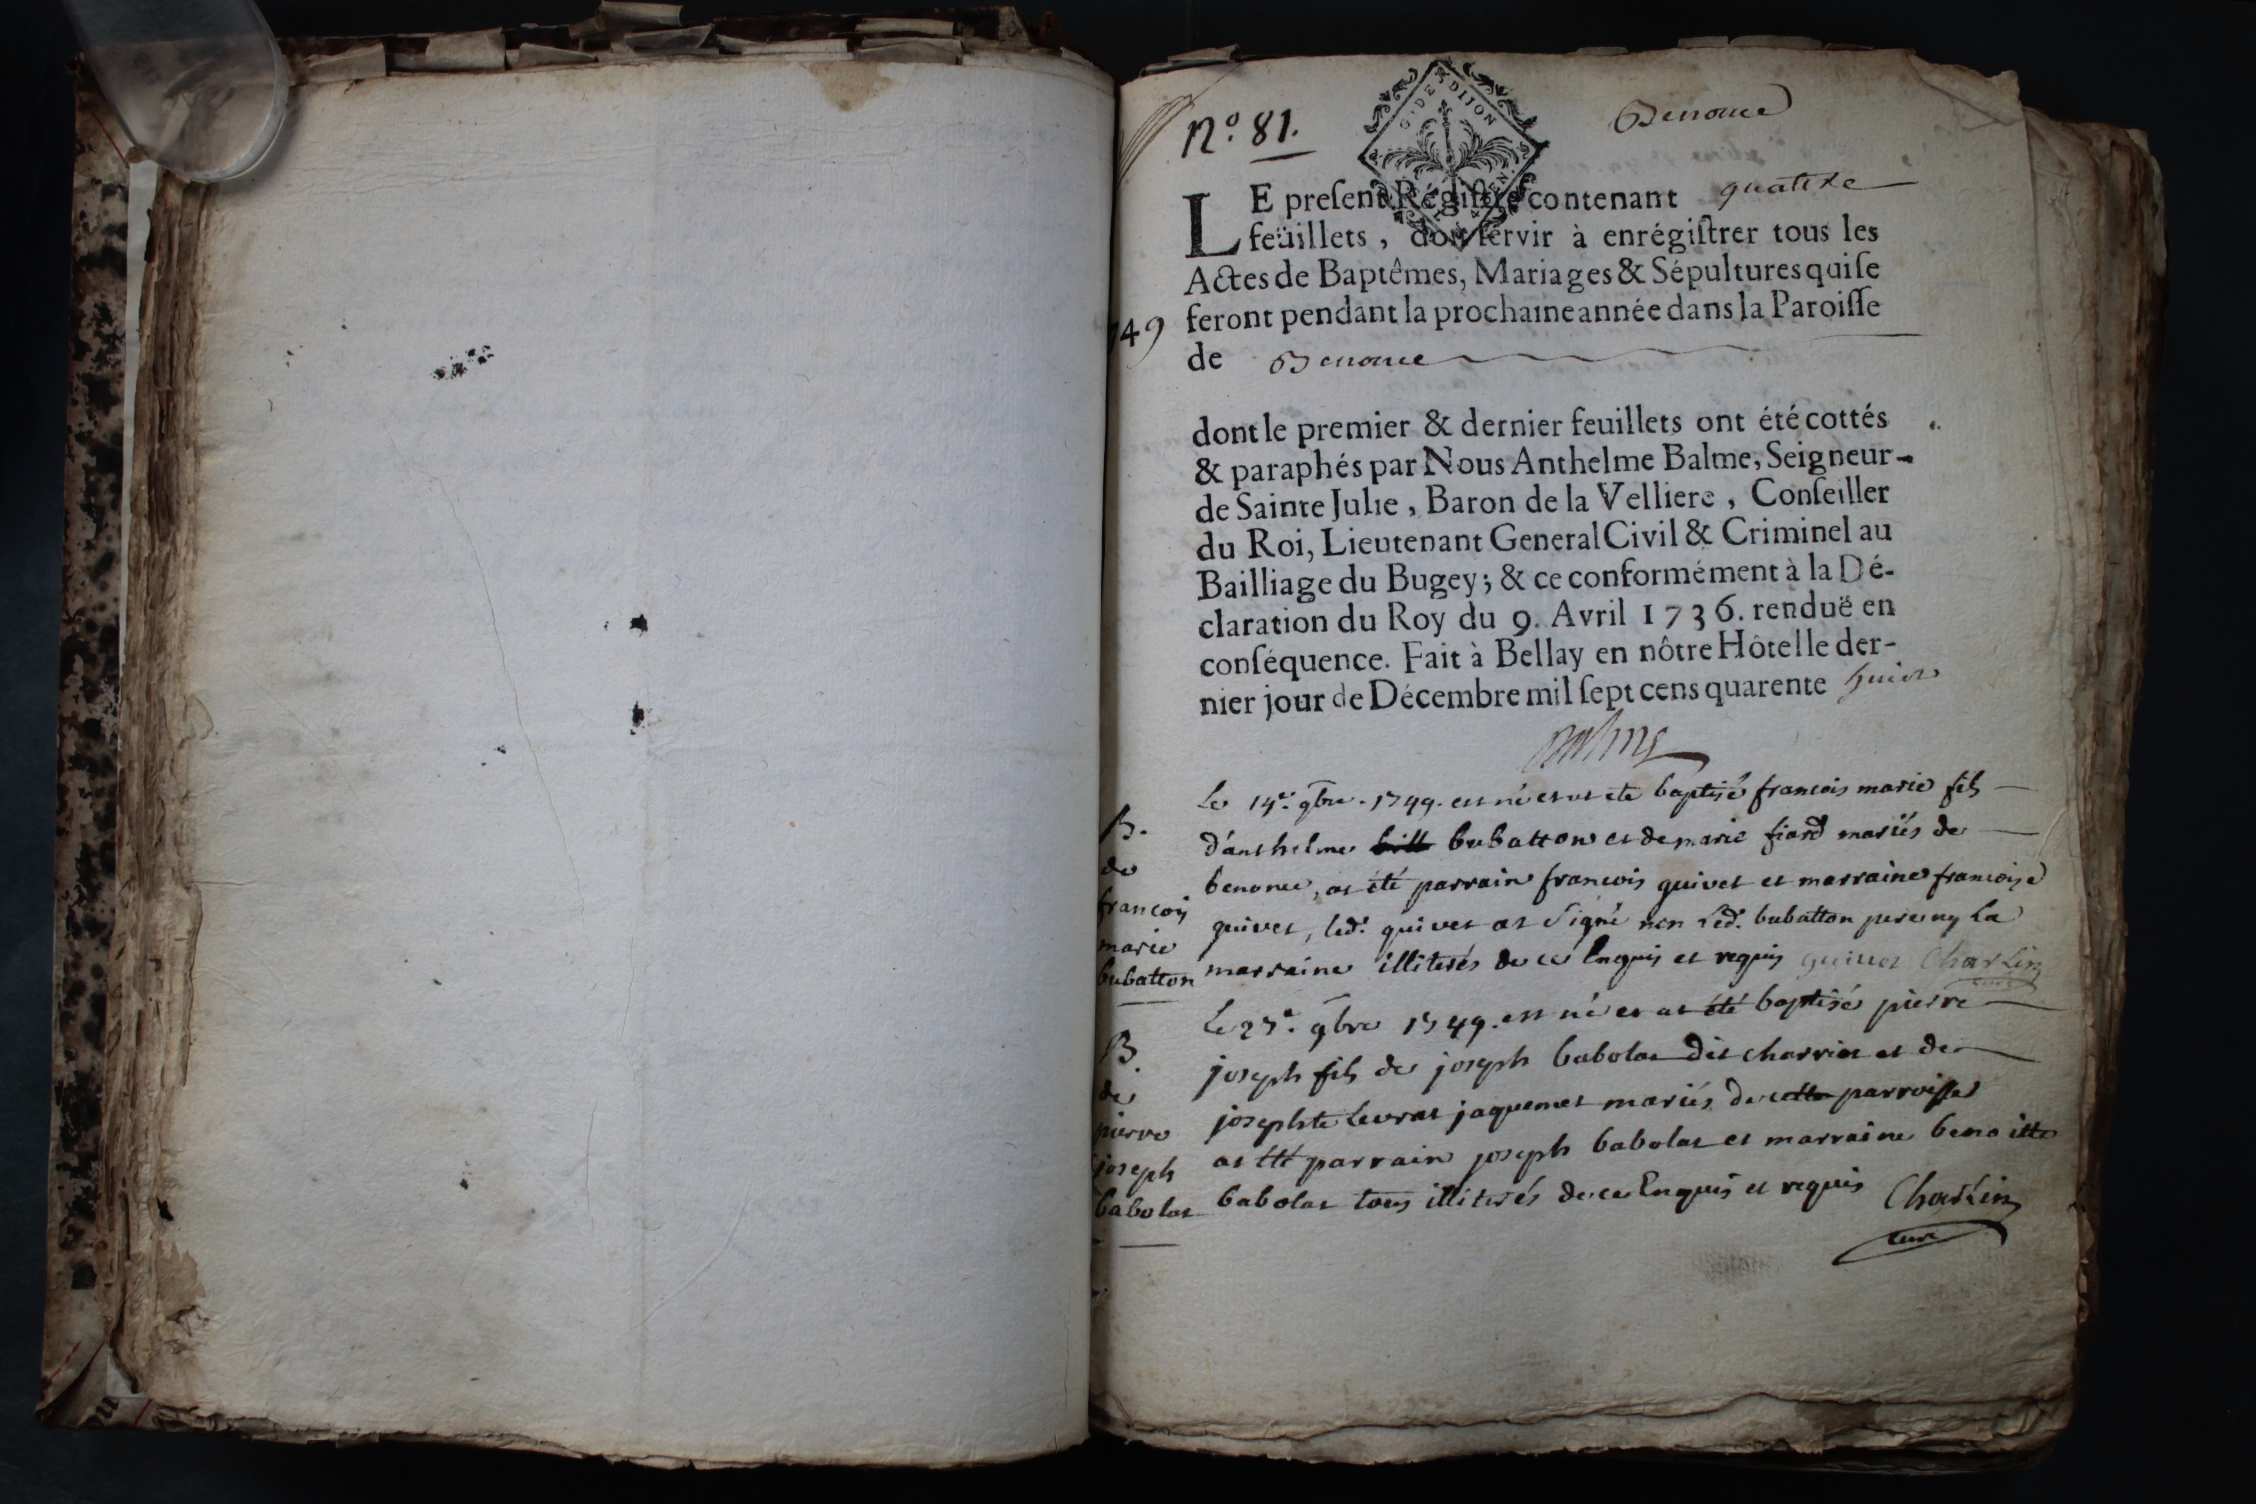 No. 81.
G. DE DIJON
Benonce
LE preſent Régiſtre contenant quatre
feüillets, doit ſervir à enrégiſtrer tous les
Actes de Baptêmes, Mariages & Sépultures qui ſe
feront pendant la prochaine année dans la Paroiſſe
749
de Benonce
dont le premier & dernier feuillets ont été cottés
& paraphés par Nous Anthelme Balme, Seigneur
de Sainte Julie, Baron de la Velliere, Conſeiller
du Roi, Lieutenant General Civil & Criminel au
Bailliage du Bugey; & ce conformément à la Dé-
claration du Roy du 9. Avril 1736. renduë en
conſéquence. Fait à Bellay en nôtre Hôtel le der-
nier jour de Décembre mil ſept cens quarente huict
Balme
B.
de
françois
marie
bubatton
Le 14e. 9bre. 1749. est né et at eté baptisé francois marie fils
d'anthelme bubatton et de marie fiard mariés de
benonce, at été parrain francois quivet et marraine francoise
quivet, led. quivet at signé non led. bubatton pere ny la
marraine illiterés de ce Enquis et requis quivet Charlin
curé
B.
de
pierre
joseph
babolat
Le 27e. 9bre 1749. est né et at été baptisé pierre
joseph fils de joseph babolat dit charriet et de
josephte Levrat jaquemet mariés de cette parroisse
at été parrain joseph babolat et marraine benoitte
babolat tous illiterés de ce Enquis et requis Charlin
curé